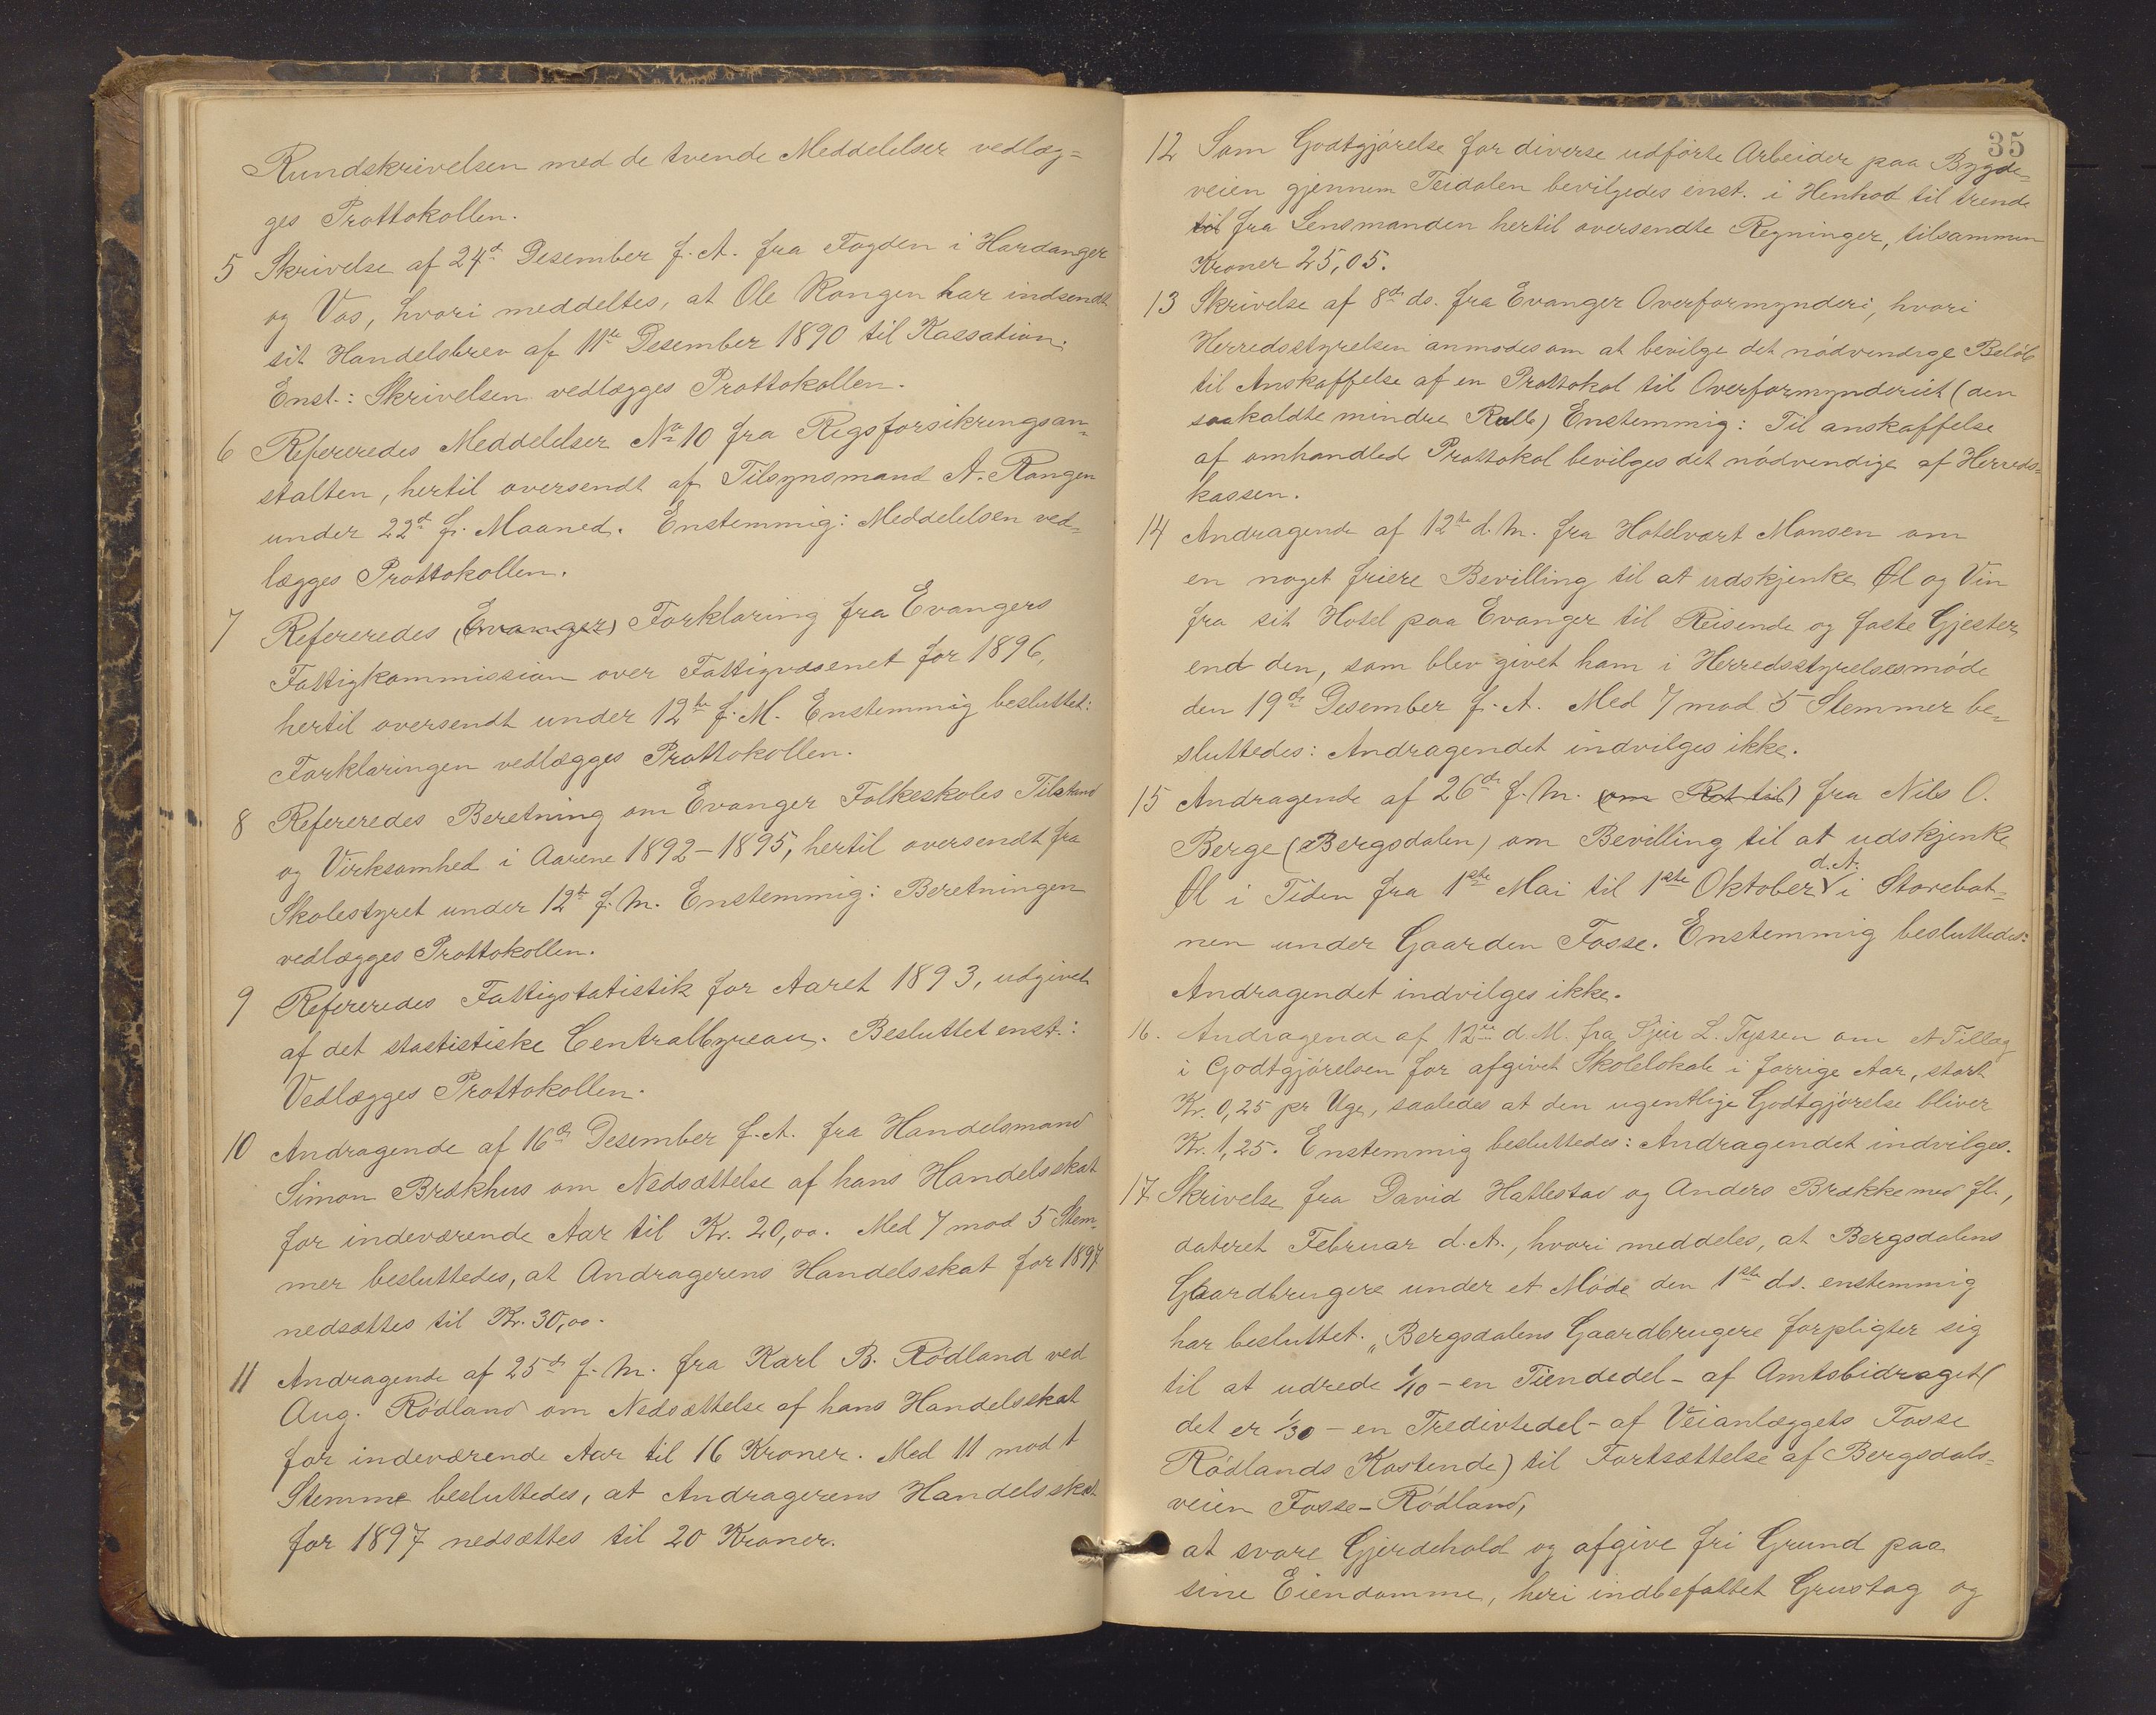 Rundskrivelsen med de tvende Meddelelser vedlæg=
ges Prottokollen.
5 Skrivelse af 24de Desember f. A. fra Fogden i Hardanger
og Vos, hvori meddeltes, at Ole Rongen har indsendt
sit Handelsbrev af 11te Desember 1890 til Kassation.
Enst.: Skrivelsen vedlægges Prottokollen.
6 Refereredes Meddelelser No 10 fra Rigsforsikringsan=
stalten, hertil oversendt af Tilsynsmand A. Rongen
under 22de f. Maaned. Enstemmig: Meddelelsen ved=
lægges Prottokollen.
7 Refereredes (Evanger) Forklaring fra Evangers
Fattigkommission over Fattigvæsenet for 1896,
hertil oversendt under 12te f. M. Enstemmig besluttet:
Forklaringen vedlægges Prottokollen.
8 Refereredes Beretning om Evanger Folkeskoles Tilstand
og Virksomhed i Aarene 1892-1895, hertil oversendt fra
Skolestyret under 12te f. M. Enstemmig: Beretningen
vedlægges Prottokollen.
9 Refereredes Fattigstatistik for Aaret 1893, udgivet
af det stastistiske Centralbyreau. Besluttet enst.:
Vedlægges Prottokollen.
10 Andragende af 16de Desember f. A. fra Handelsmand
Simon Brækhus om Nedsættelse af hans Handelsskat
for indeværende Aar til Kr. 20,00. Med 7 mod 5 Stem=
mer besluttedes, at Andragerens Handelsskat for 1897
nedsættes til Kr. 30,00.
11 Andragende af 25de f. M. fra Karl B. Rødland ved
Aug. Rødland om Nedsættelse af hans Handelsskat
for indeværende Aar til 16 Kroner. Med 11 mod 1
Stemme besluttedes, at Andragerens Handelsskat
for 1897 nedsættes til 20 Kroner.
35
12 Som Godtgjørelse for diverse udførte Arbeider paa Bygde=
veien gjennem Teidalen bevilgedes enst. i Henhod til trende
til fra Lensmanden hertil oversendte Regninger, tilsammen
Kroner 25,05.
13 Skrivelse af 8de ds. fra Evanger Overformynderi, hvori
Herredsstyrelsen anmodes om at bevilge det nødvendige Beløb
til Anskaffelse af en Prottokol til Overformynderiet (den
saakaldte mindre Rulle) Enstemmig: Til anskaffelse
af omhandlede Prottokol bevilges det nødvendige af Herreds=
kassen.
14 Andragende af 12te d. M. fra Hotelvært Monsen om
en noget friere Bevilling til at udskjenke Øl og Vin
fra sit Hotel paa Evanger til Reisende og faste Gjester
end den, som blev givet ham i Herredsstyrelsesmøde
den 19de Desember f. A. Med 7 mod 5 Stemmer be=
sluttedes: Andragendet indvilges ikke.
15 Andragende af 26de f. M. (om Ret til) fra Nils O.
Berge (Bergsdalen) om Bevilling til at udskjenke
d. A.
Øl i Tiden fra 1ste Mai til 1ste Oktober i Storebot=
nen under Gaarden Fosse. Enstemmig besluttedes:
Andragendet indvilges ikke.
16. Andragende af 12te d. M. fra Sjur L. Tyssen om et Tillæg
i Godtgjørelsen for afgivet Skolelokale i forrige Aar, stort
Kr. 0,25 pr Uge, saaledes at den ugentlige Godtgjørelse bliver
Kr. 1,25. Enstemmig besluttedes: Andragendet indvilges.
17. Skrivelse fra David Hatlestad og Anders Brække med fl.,
dateret Februar d. A., hvori meddeles, at Bergsdalens
Gaardbrugere under et Møde den 1ste ds. enstemmig
har besluttet: „Bergsdalens Gaardbrugere forpligter sig
til at udrede 1/10 - en Tiendedel - af Amtsbidraget (
det er 1/30 - en Tredivtedel - af Veianlæggets Fosse
Rødlands Kostende) til Fortsættelse af Bergsdals=
veien Fosse-Rødland,
at svare Gjerdehold og afgive fri Grund paa
sine Eiendomme, heri indbefattet Grustag og